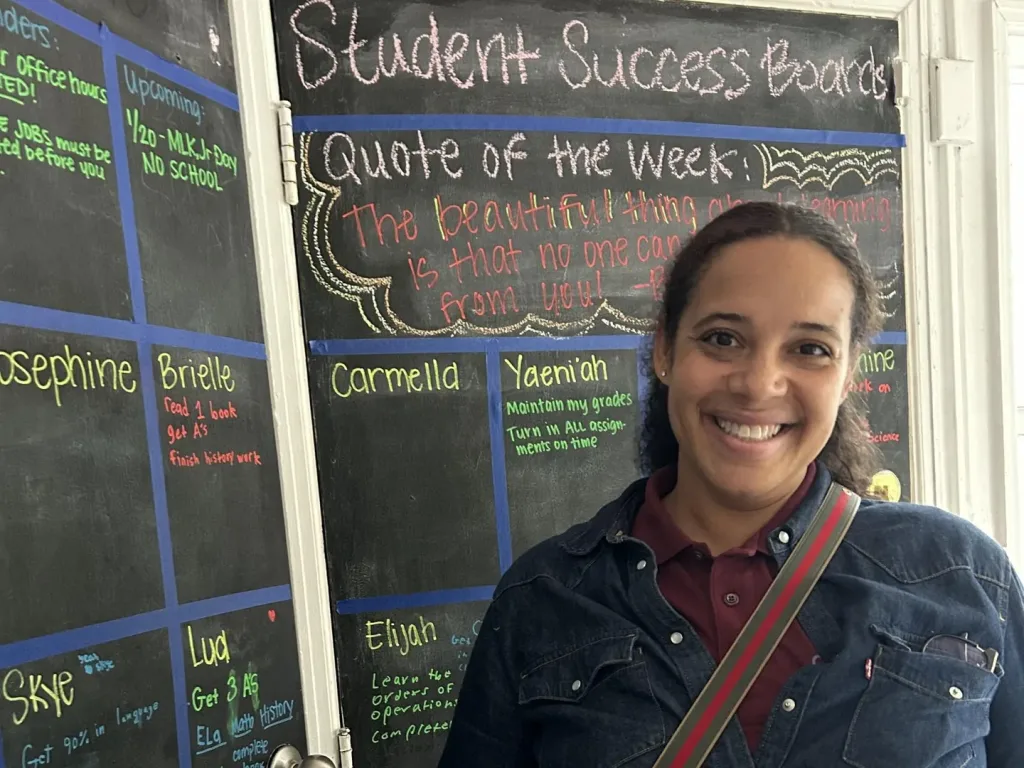 office hours
JOBS must be
before you
Upcoming:
1/20 - MLK Jr Day
NO SCHOOL
Student Success Boards
Quote of the Week:
The beautiful thing
is that no one can
from you! -
osephine
Brielle
read 1 book
get A's
finish history work
Carmella
Yaeni'ah
Maintain my grades
Turn in ALL assign-
ments on time
hine
on
science
Skye
Get 90% in language
Lua
Get 3 A's
ELa Math History
complete
Elijah
Learn the
orders of
operations
complete